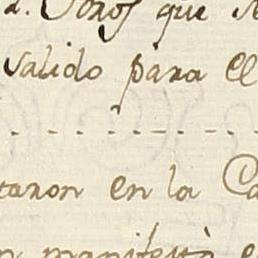 que
valido para el
taron en la Ca
manifestò